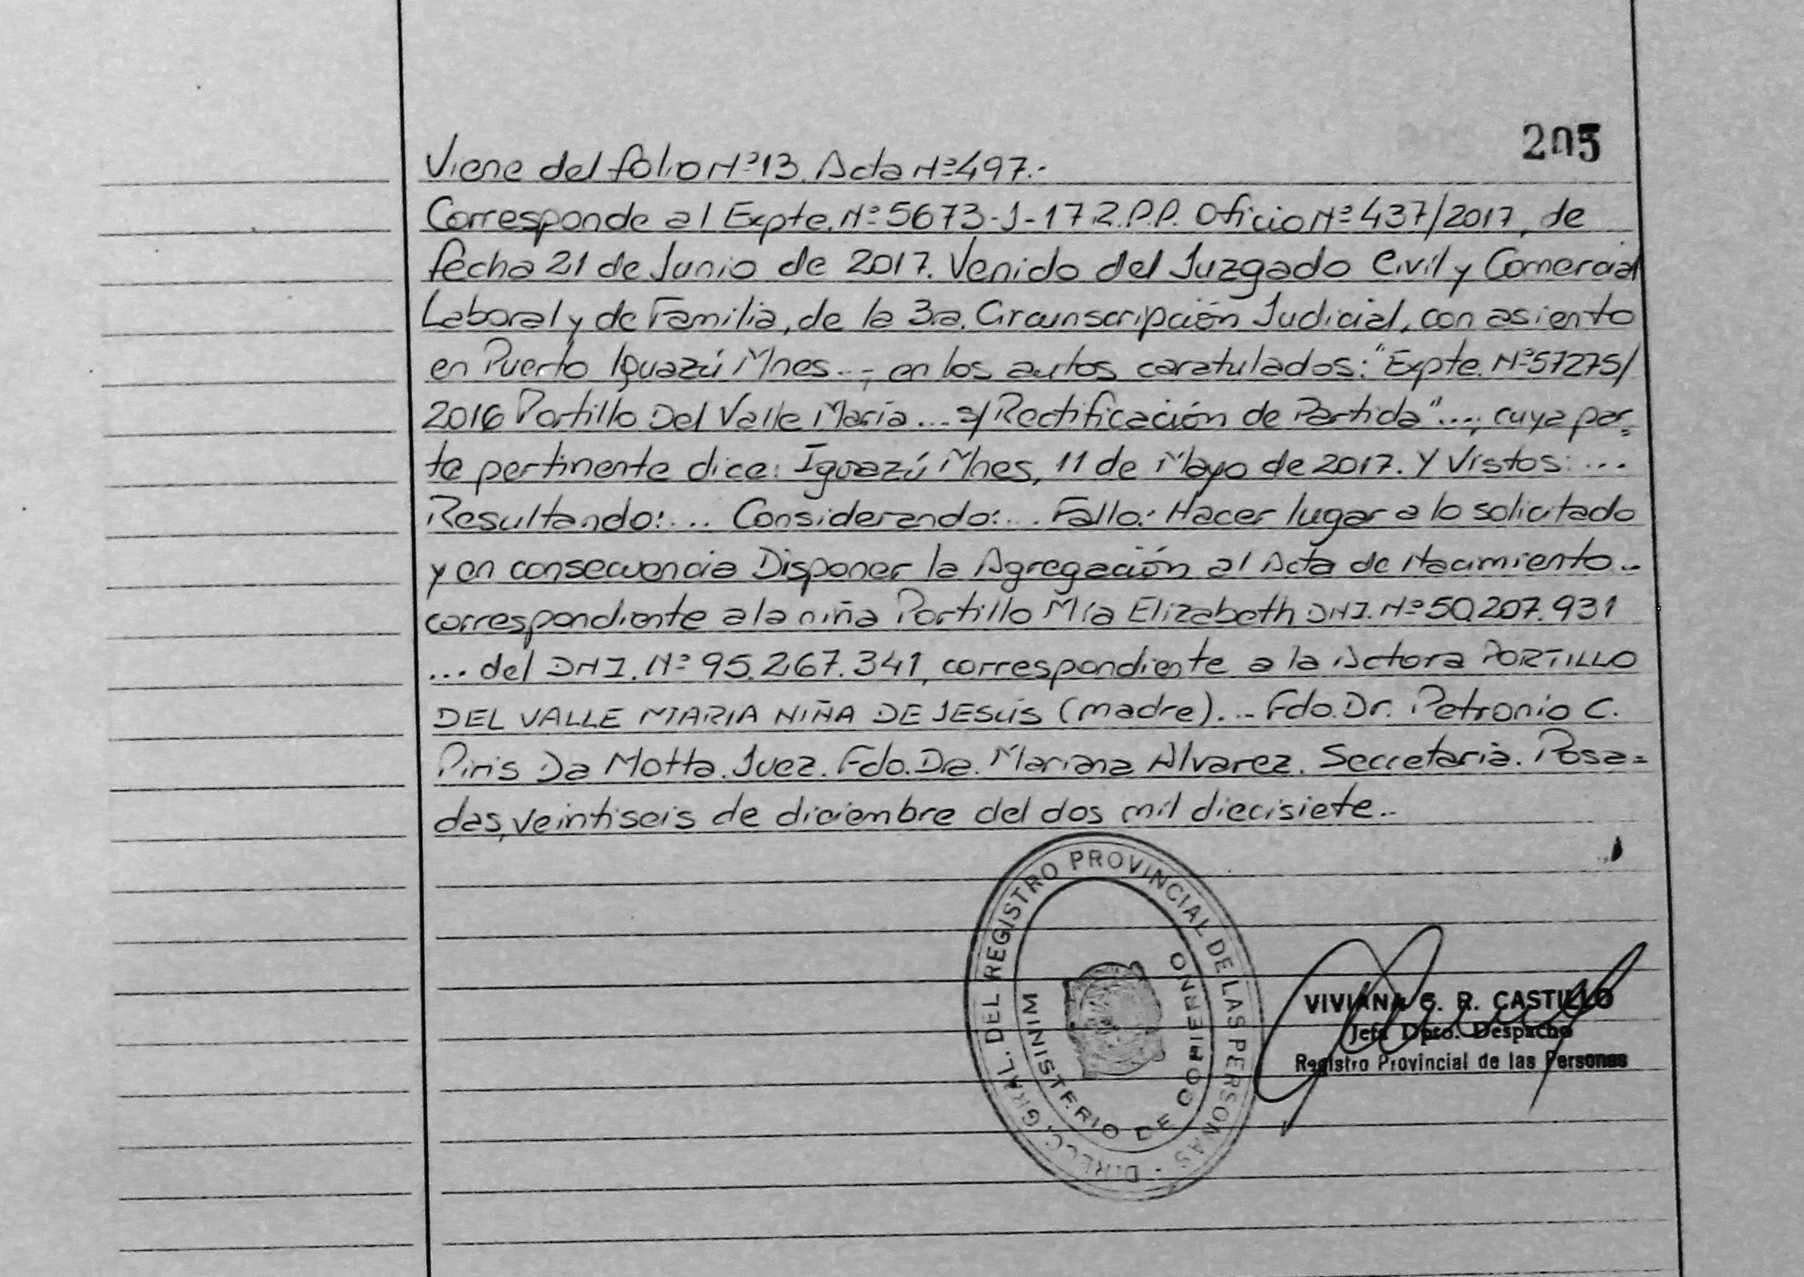 205
Viene del folio Nº 13. Acta Nº 497.-
Corresponde al Expte. Nº 5673-J-17 R.P.P. Oficio Nº 437/2017, de
fecha 21 de Junio de 2017. Venido del Juzgado Civil y Comercial
Laboral y de Familia, de la 3ra. Circunscripción Judicial, con asiento
en Puerto Iguazú Mnes...; en los autos caratulados: "Expte. Nº 57275/
2016 Portillo Del Valle María ... s/ Rectificación de Partida"..., cuya par=
te pertinente dice: Iguazú Mnes, 11 de Mayo de 2017. Y Vistos: ...
Resultando: ... Considerando: ... Fallo: Hacer lugar a lo solicitado
y en consecuencia Disponer la Agregación al Acta de Nacimiento...
correspondiente a la niña Portillo Mía Elizabeth DNI. Nº 50.207.931
... del DNI. Nº 95.267.341, correspondiente a la Actora PORTILLO
DEL VALLE MARIA NIÑA DE JESÚS (madre)... Fdo. Dr. Petronio C.
Piris Da Motta. Juez. Fdo. Dra. Mariana Alvarez. Secretaria. Posa=
das, veintiseis de diciembre del dos mil diecisiete..
DIRECC. GRAL. DEL REGISTRO PROVINCIAL DE LAS PERSONAS -
MINISTERIO DE GOBIERNO
VIVIANA G. R. CASTILLO
Jefa Dpto. Despacho
Registro Provincial de las Personas